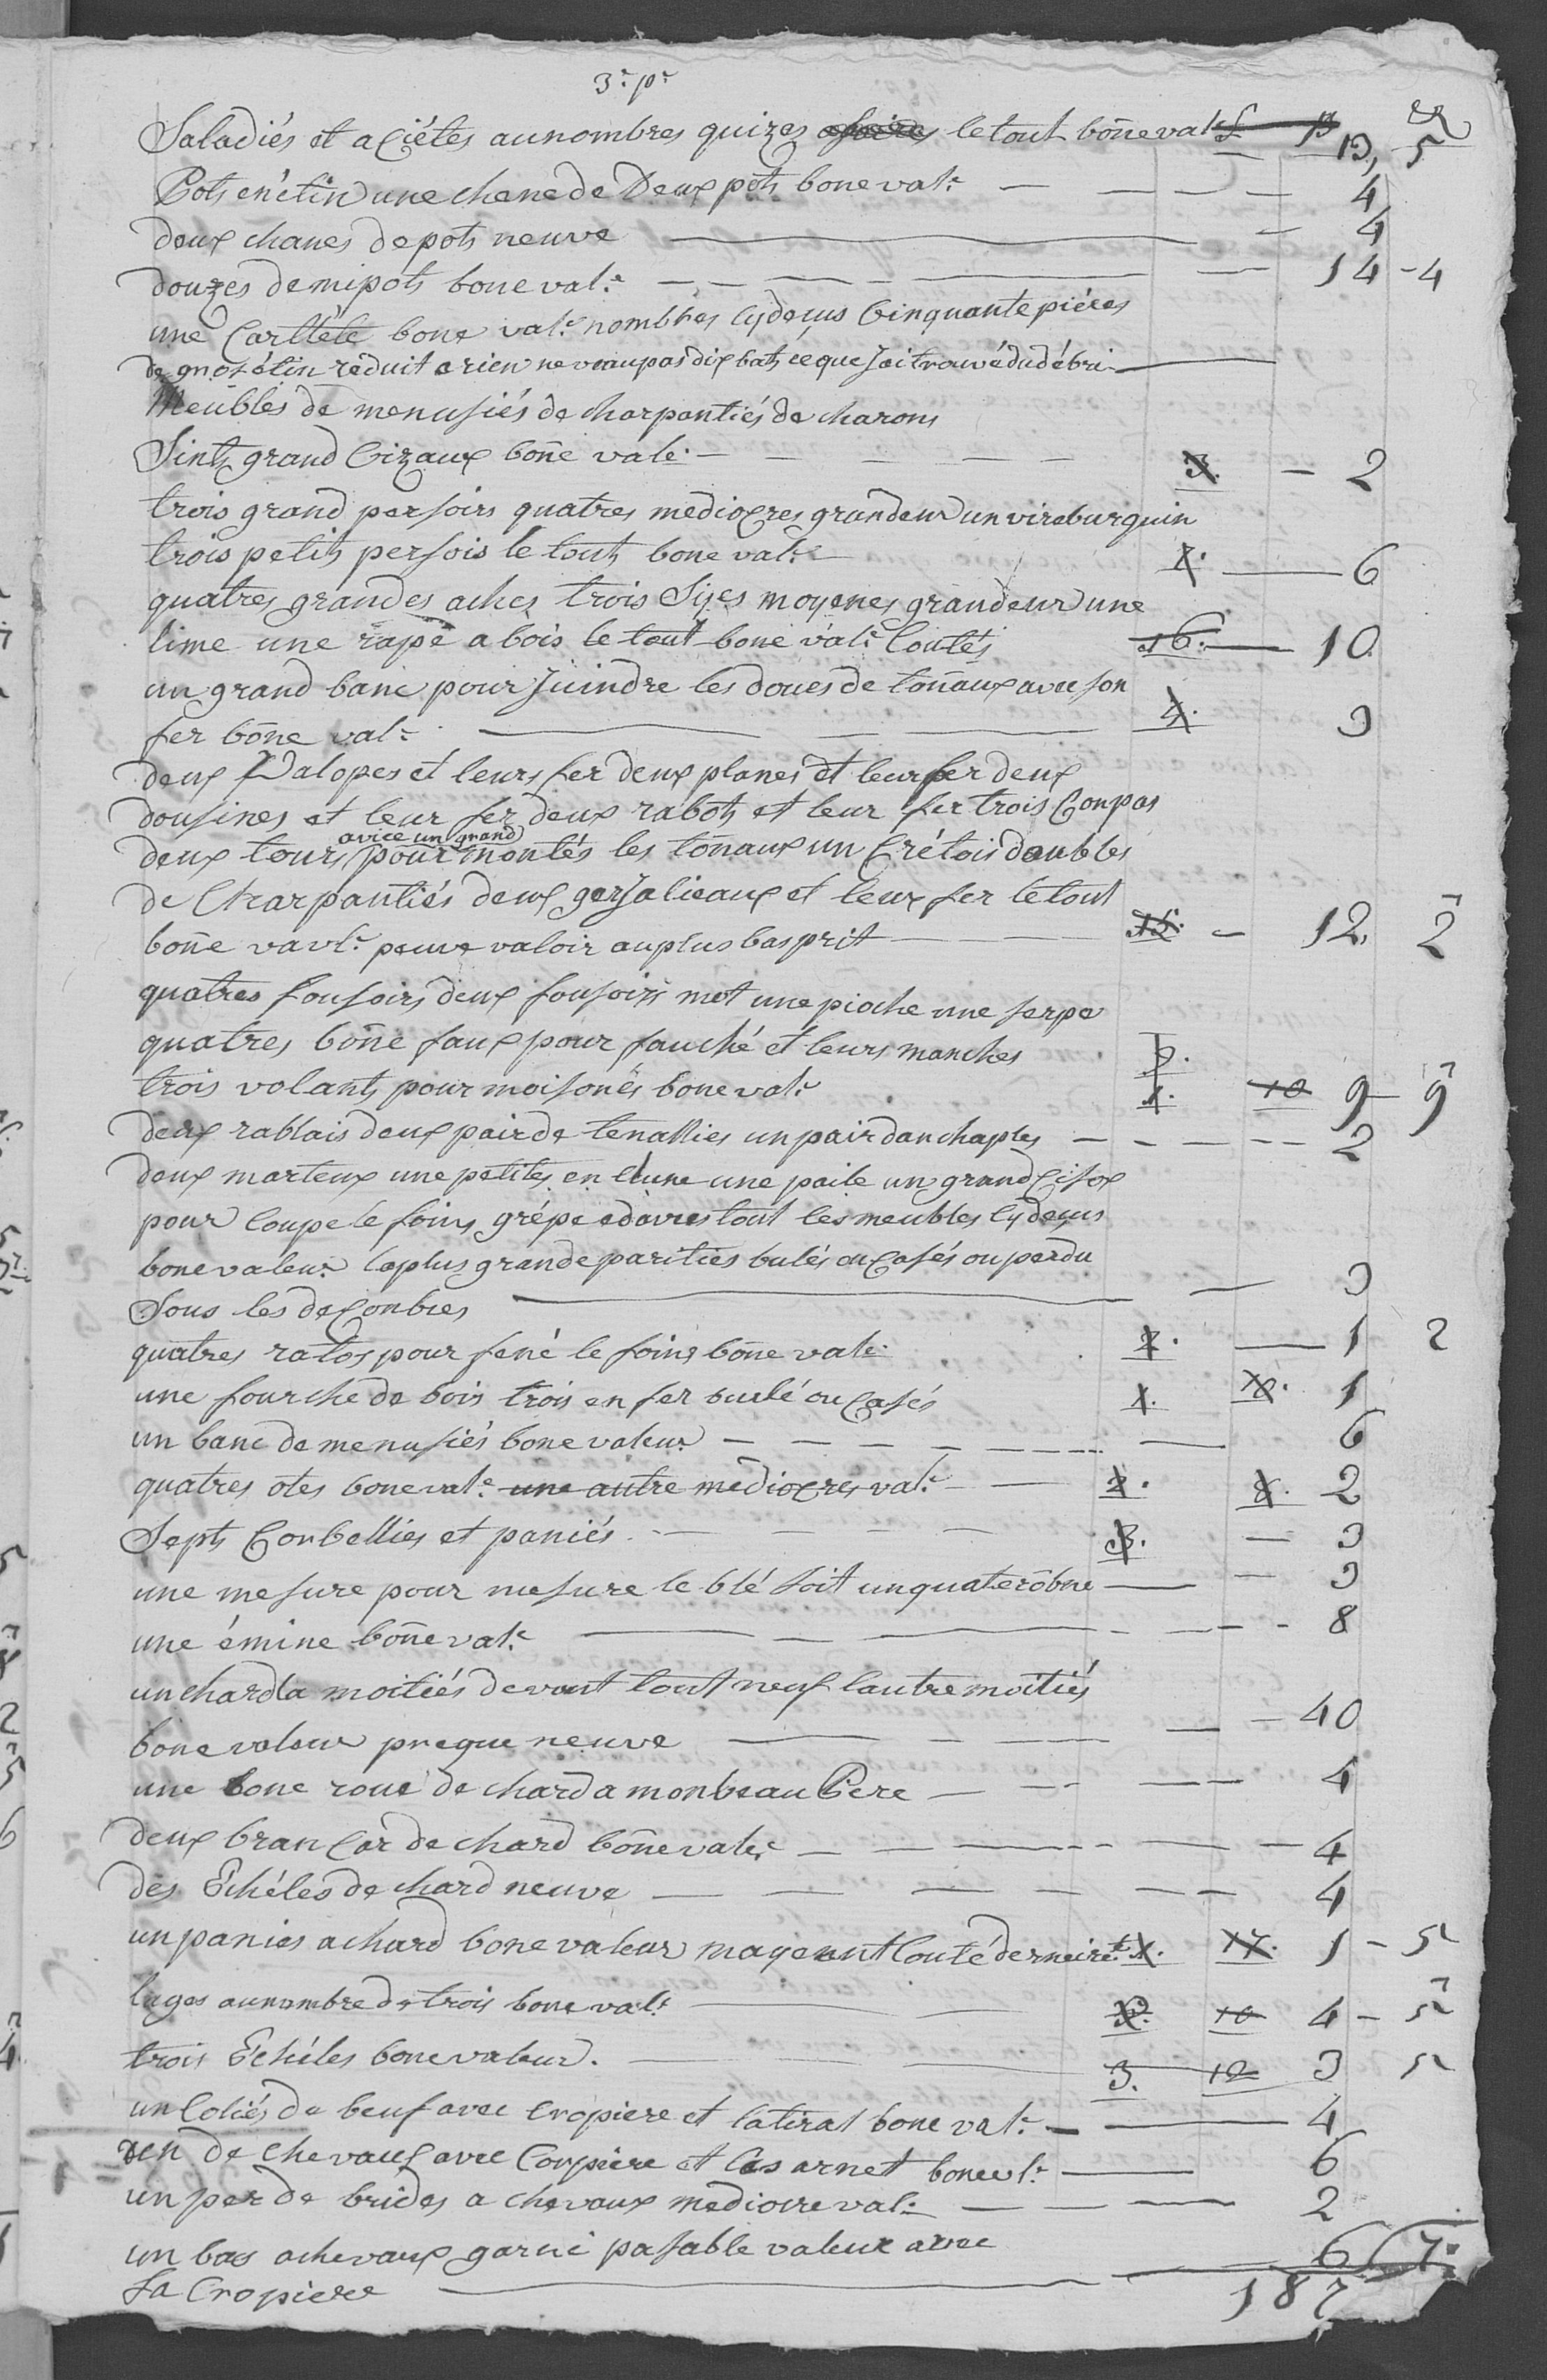 3.e p.e
Saladiés et aciétes aunombres quizes letout bonne val.r 13, 5
Pots en étin une chane de Deux pots bone val.r — 4
deux chanes de pots neuve — 4
douzes demipots bone val.r — 14 - 4
une Carttéle bone val.r nombres cydeçus Cinquante piéces
de gnos étin réduit a rien ne veaupas dix batz ce que Jai trouvé du débri —
Meubles de menusiés de charpantiés de charons
Sintz grand Cizaux bone vale. — 3. — 2
trois grand persoirs quatres mediocres grandeur un vireburguin
trois petits persois le tout bone val.r — 7. — 6
quatres grandes aches trois Siyes moyenes grandeur une
lime une rape a bois le tout bone val.r Coutés 16. — 10
un grand banc pour Juindre les doues de tonaux avec son
fer bone val.r — 4. 3
deux Valopes et leurs fer deux planes et leur fer deux
dousines et leur fer deux rabots et leur fer trois Conpas
avice un grand
deux tours pour montés les tonaux un Crétois doubles
de Charpantiés deux gerjalieaux et leur fer le tout
bone vavl.r peuve valoir au plus bas prit — 15. — 12. 2
quatres fousoirs deux fousoirs mot une pioche une serpe
quatres bone faux pour fauché et leurs manches
trois volants pour moisonés bone val.r 1. 10 9 9
deux rablais deux pair de tenallies un pair danchaples — 2
deux marteux une petites enclune une paile un grand Cisox
pour Coupe le foins grépe adavres tout les meubles cydeçus
bone valeur la plus grande parities bulés ou Casés ou perdu
Sous les deConbres — 3
quatres ratos pour fené le foins bone vale. 2. — 1 2
une fourche de bois trois en fer burlé ou Casés 1. 10. 1
un banc de menusiés bone valeur — 6
quatres otes bone val.r une autre médiocres val.r — 2. 8. 2
Septs Corbellies et paniés — 3. — 3
une mesure pour mesure le blé soit un quaterobne — 3
une émine bone val.r — 8
un chard la moitiés devant tout neuf lautre moitiés
bone valeur preque neuve — 40
une bone roue de chard a mon beau Pere — 4
deux branCar de chard bone vale — 4
des Echéles de chard neuve — 4
un panies a chard bone valeur mayennt Couté derneiret 1. 17. 1 - 5
luges aunombre de trois bone val.r — 10 4 - 5
trois Echéles bone valeur. — 3. 12 3 5
un Coliés de beuf avec Cropiere et latiral bone val.r — 4
un de chevaux avec Corpiere et les arnet bone vl.r — 6
un per de brides a chevaux mediocre val.r — 2
un bas achevaux garni pasable valeur avec
sa Cropiere — 6 7.
187